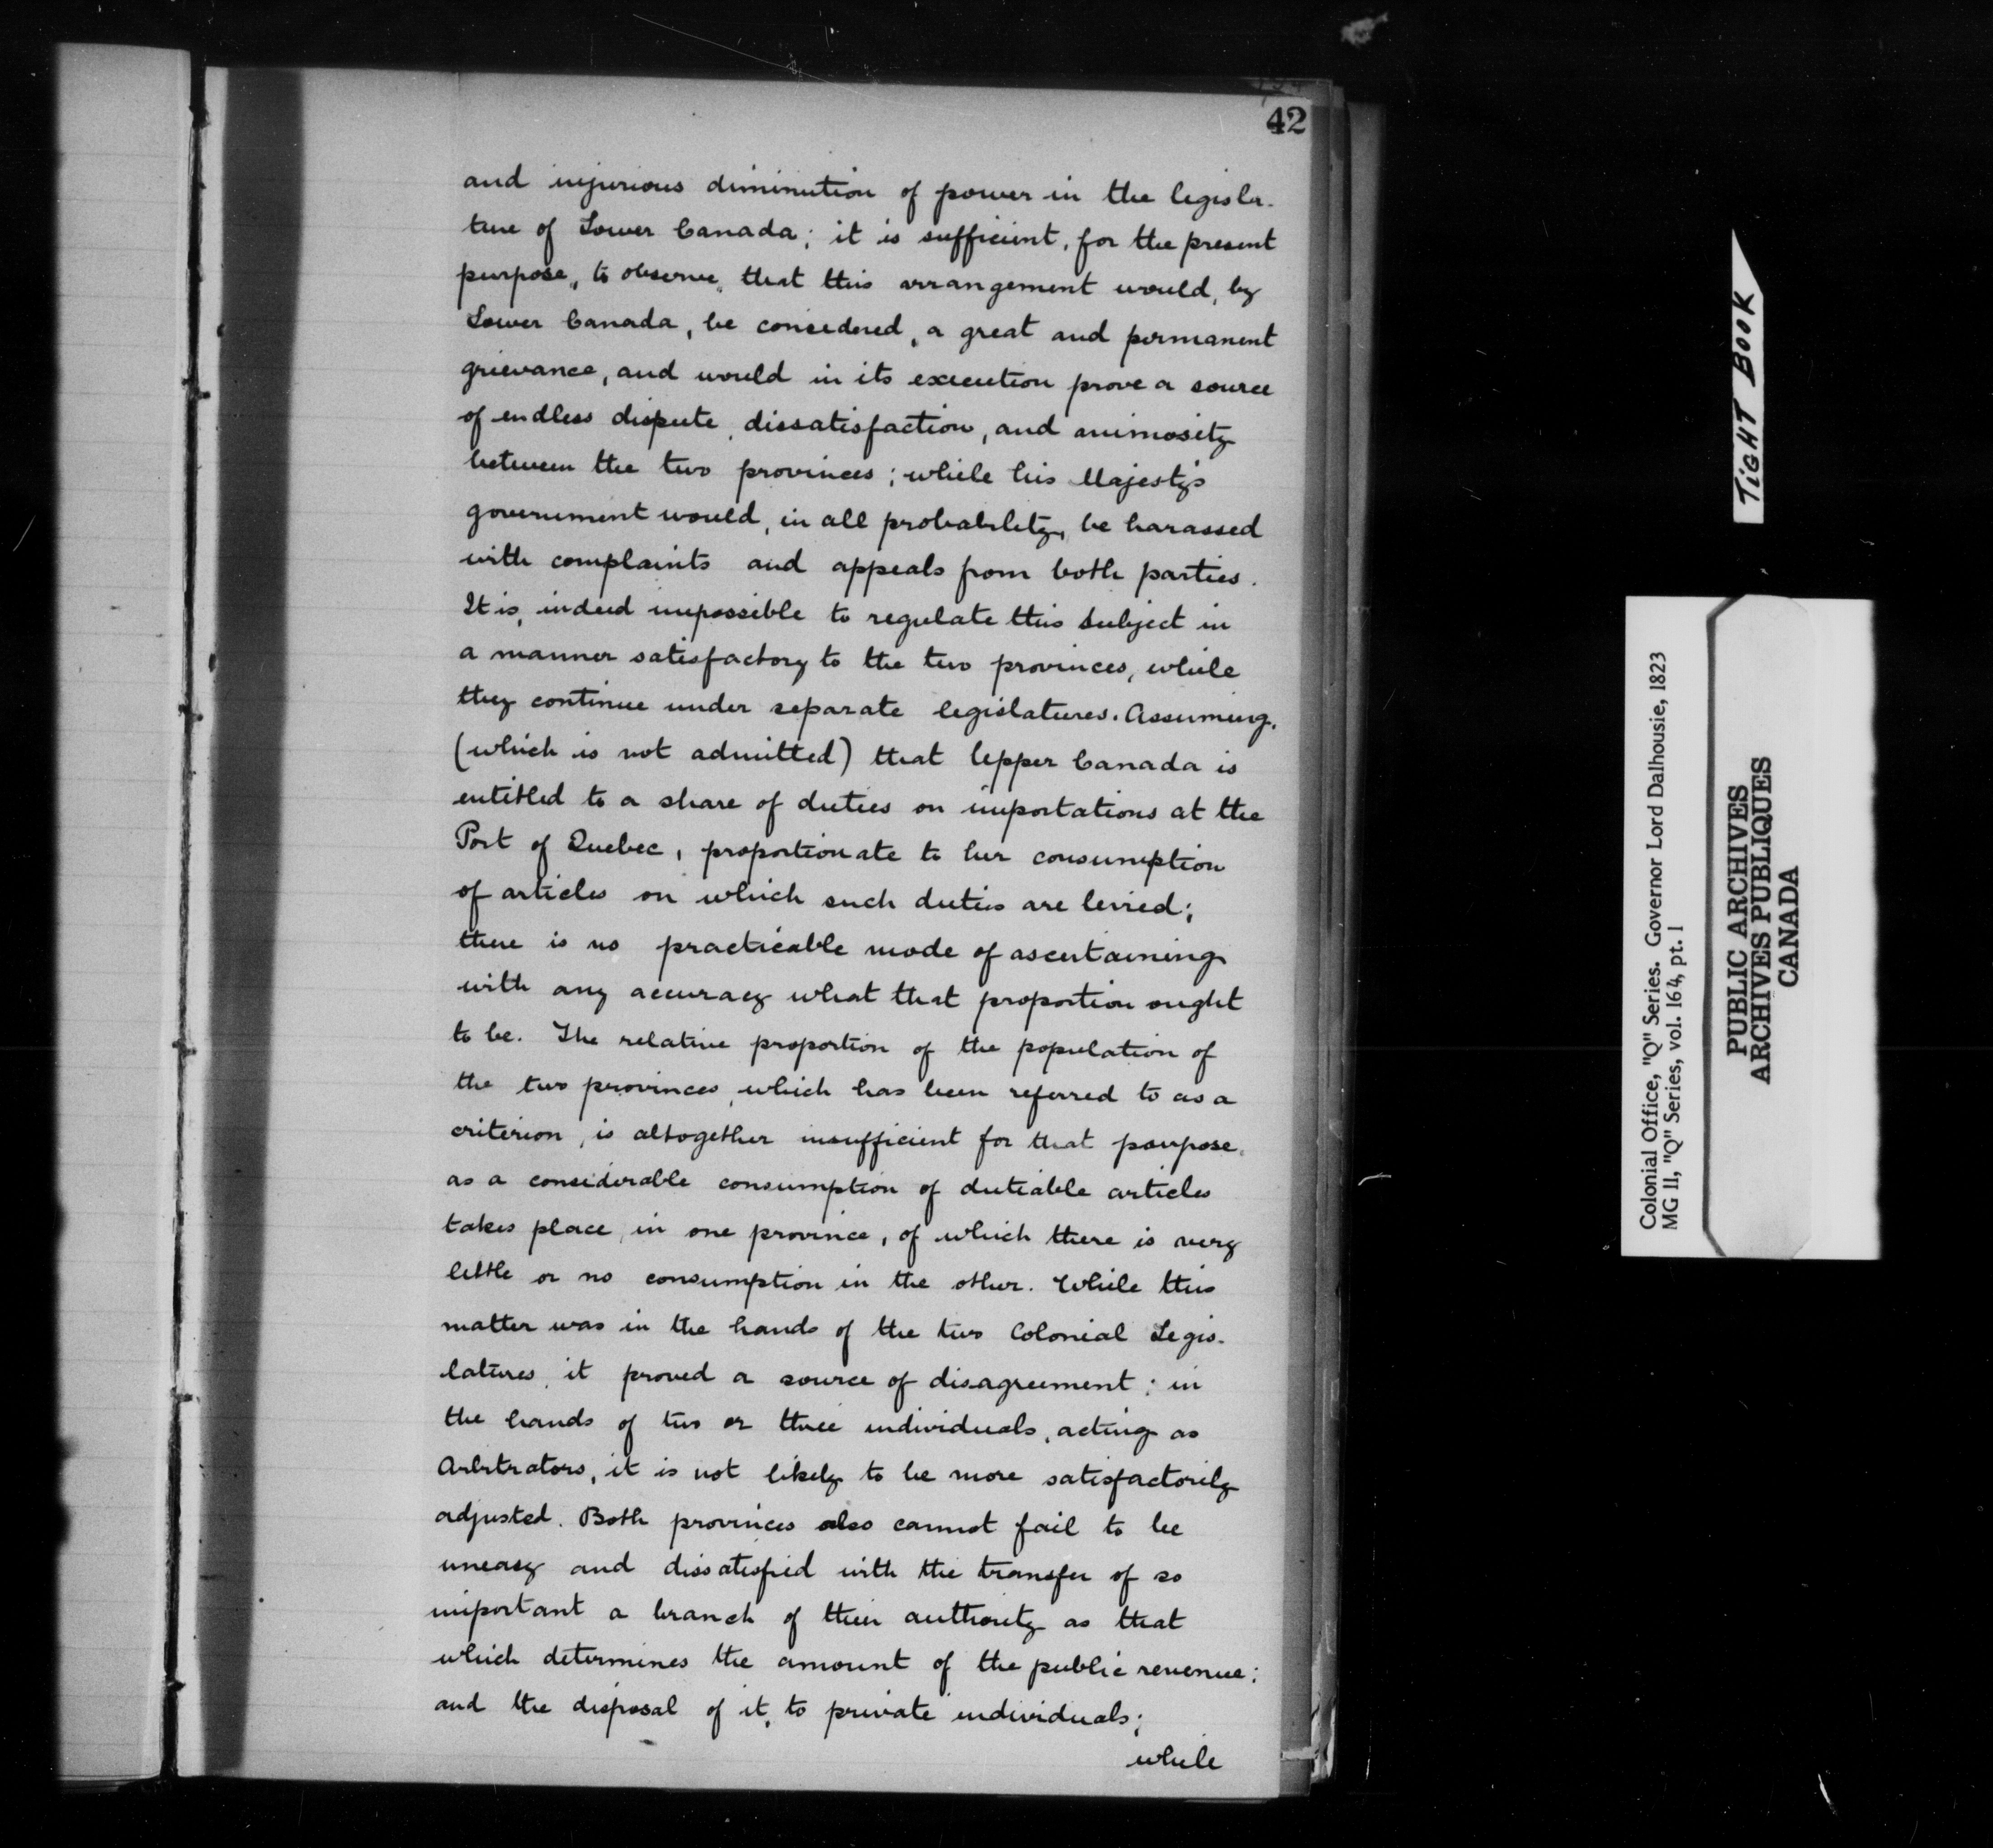 42
and injurious diminution of power in the legisla-
ture of Lower Canada; it is sufficient, for the present
purpose, to observe, that this arrangement would, by
Lower Canada, be considered, a great and permanent
grievance, and would in its execution prove a source
of endless dispute, dissatisfaction, and animosity
between the two provinces; while his Majesty's
government would, in all probability, be harassed
with complaints and appeals from both parties.
It is, indeed impossible to regulate this subject in
a manner satisfactory to the two provinces, while
they continue under separate legislatures. Assuming,
(which is not admitted) that Upper Canada is
entitled to a share of duties on importations at the
Port of Quebec, proportionate to her consumption
of articles on which such duties are levied;
there is no practicable mode of ascertaining
with any accuracy what that proportion ought
to be. The relative proportion of the population of
the two provinces, which has been referred to as a
criterion, is altogether insufficient for that purpose,
as a considerable consumption of dutiable articles
takes place, in one province, of which there is very
little or no consumption in the other. While this
matter was in the hands of the two Colonial Legis-
latures, it proved a source of disagreement; in
the hands of two or three individuals, acting as
Arbitrators, it is not likely to be more satisfactorily
adjusted. Both provinces also cannot fail to be
uneasy and dissatisfied with the transfer of so
important a branch of their authority as that
which determines the amount of the public revenue;
and the disposal of it, to private individuals;
while
TIGHT BOOK
Colonial Office, "Q" Series. Governor Lord Dalhousie, 1823
MG 11, "Q" Series, vol. 164, pt. 1
PUBLIC ARCHIVES
ARCHIVES PUBLIQUES
CANADA